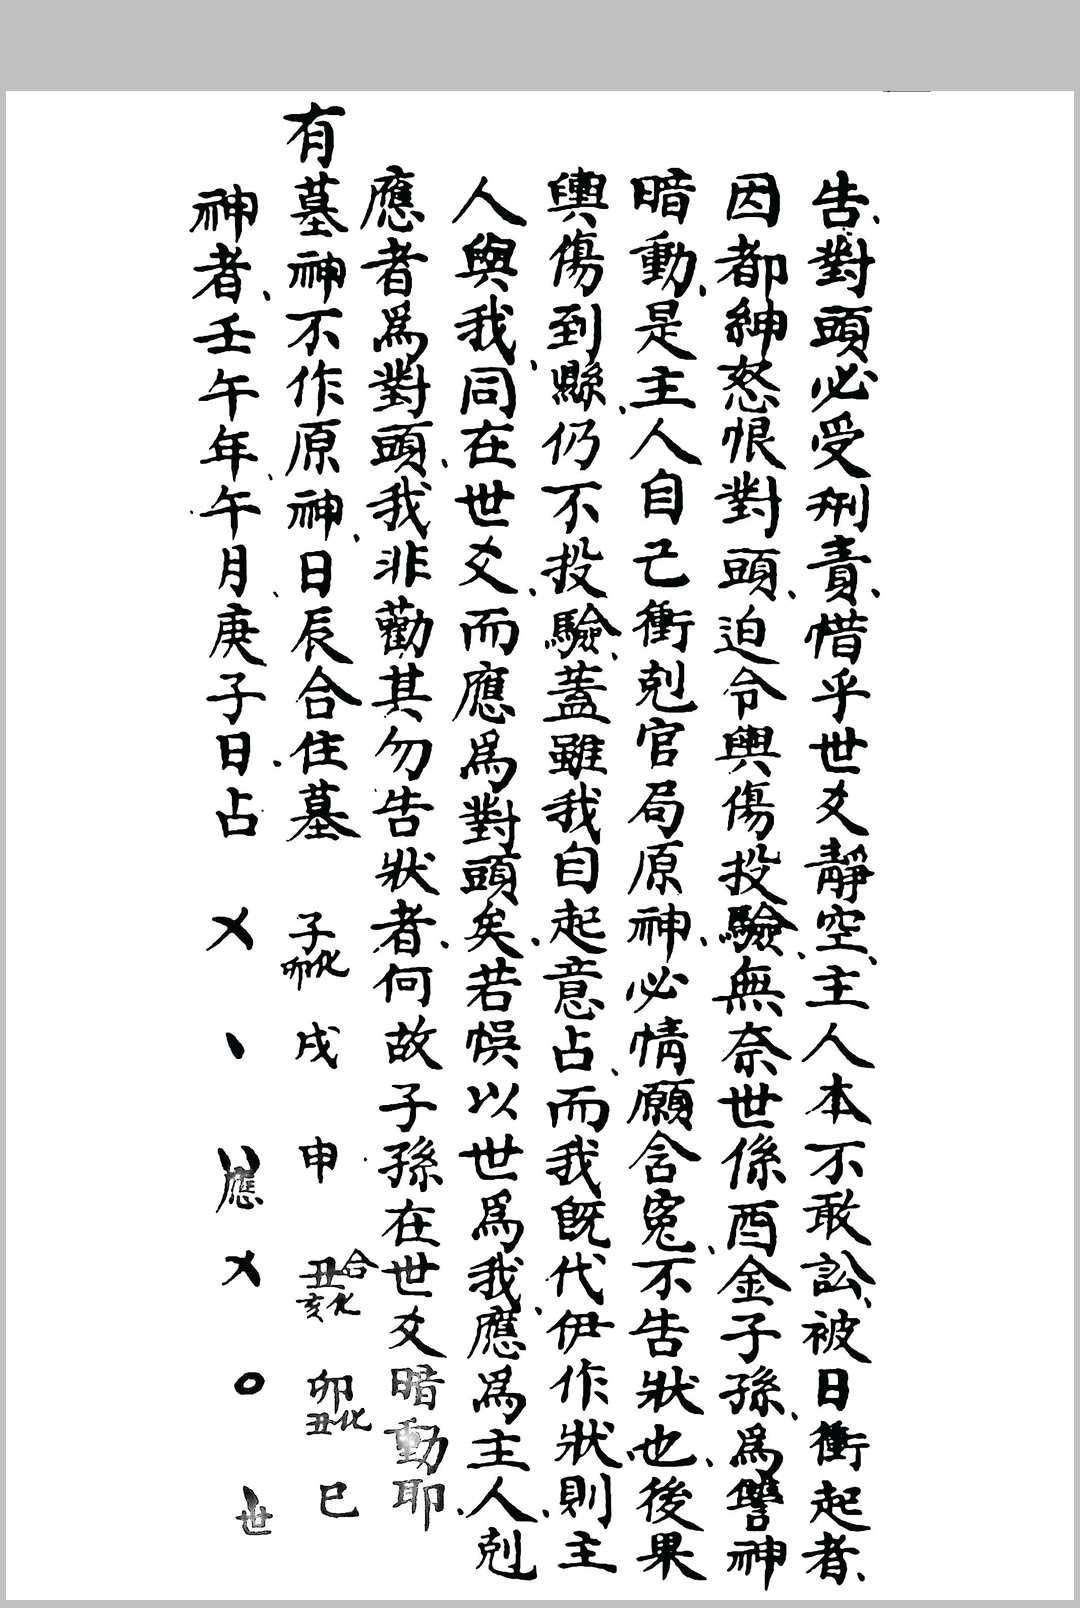 告對頭必受刑責惜乎世爻靜空主人本不敢訟被日衝起者
因都紳怒恨對頭迫令輿傷投驗無奈世係酉金子孫爲讐神
暗動是主人自已衝剋官局原神必情願含冤不告狀也後果
輿傷到縣仍不投驗蓋雖我自起意占而我既代伊作狀則主
人與我同在世爻而應爲對頭矣若悞以世爲我應爲主人剋
應者爲對頭我非勸其勿告狀者何故子孫在世爻暗動耶
有墓神不作原神日辰合住墓
神者壬午年午月庚子日占
子化卯 戌 申 丑合化亥 卯化丑 巳
乂 丶 〃應 乂 〇 丶世